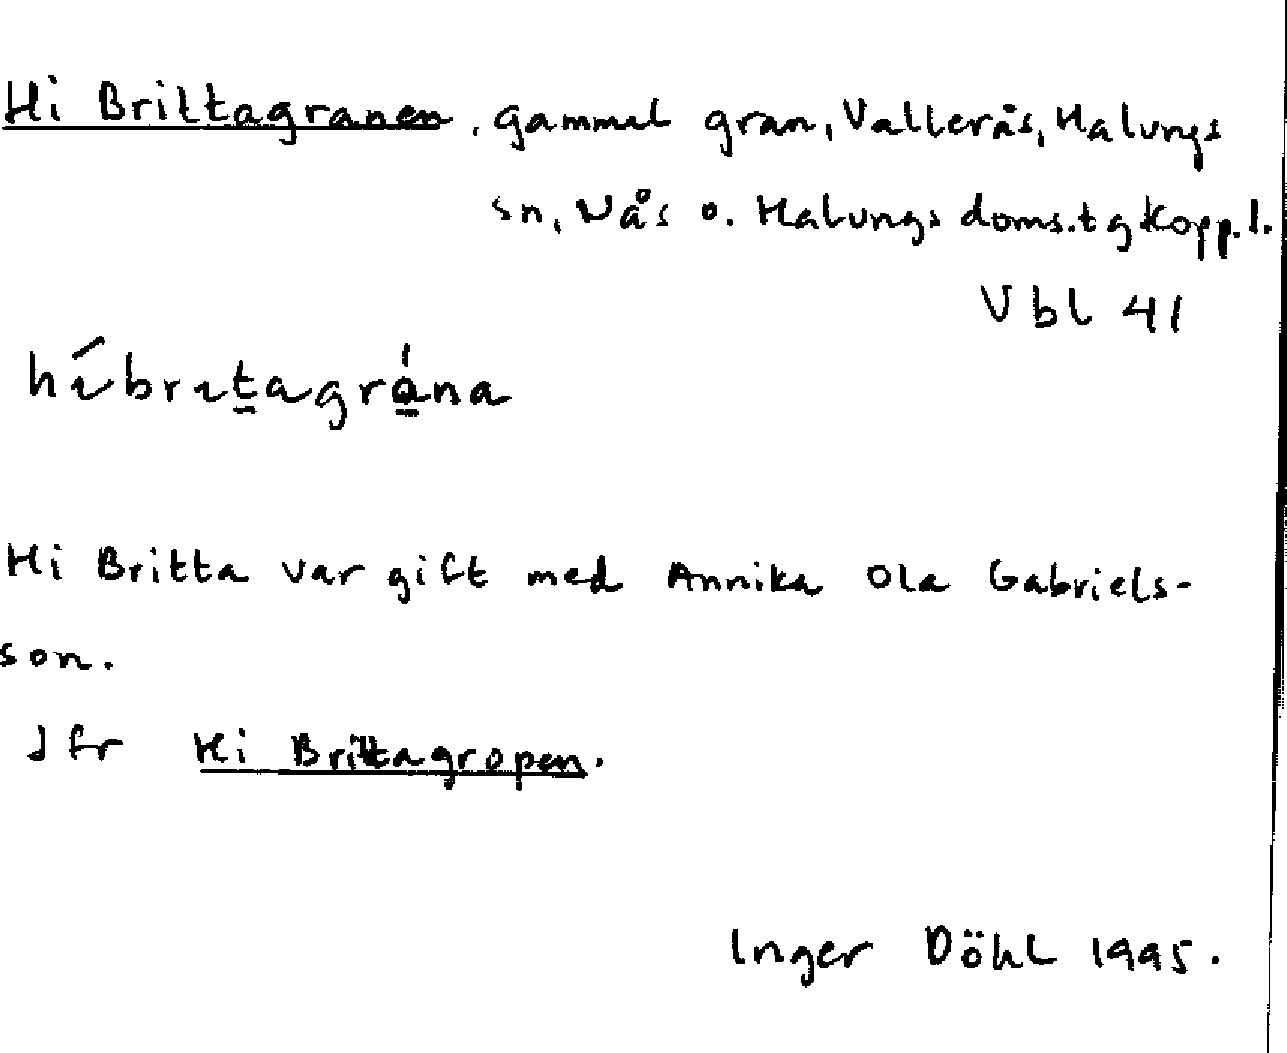 Hi Brittagranen, gammal gran, Vallerås, Malungs
sn, Nås o. Malungs doms.tg Kopp.l.
Vbl 41
híbritagrána
Hi Britta var gift med Annika Ola Gabriels-
son.
Jfr Hi Brittagropen.
Inger Döhl 1995.